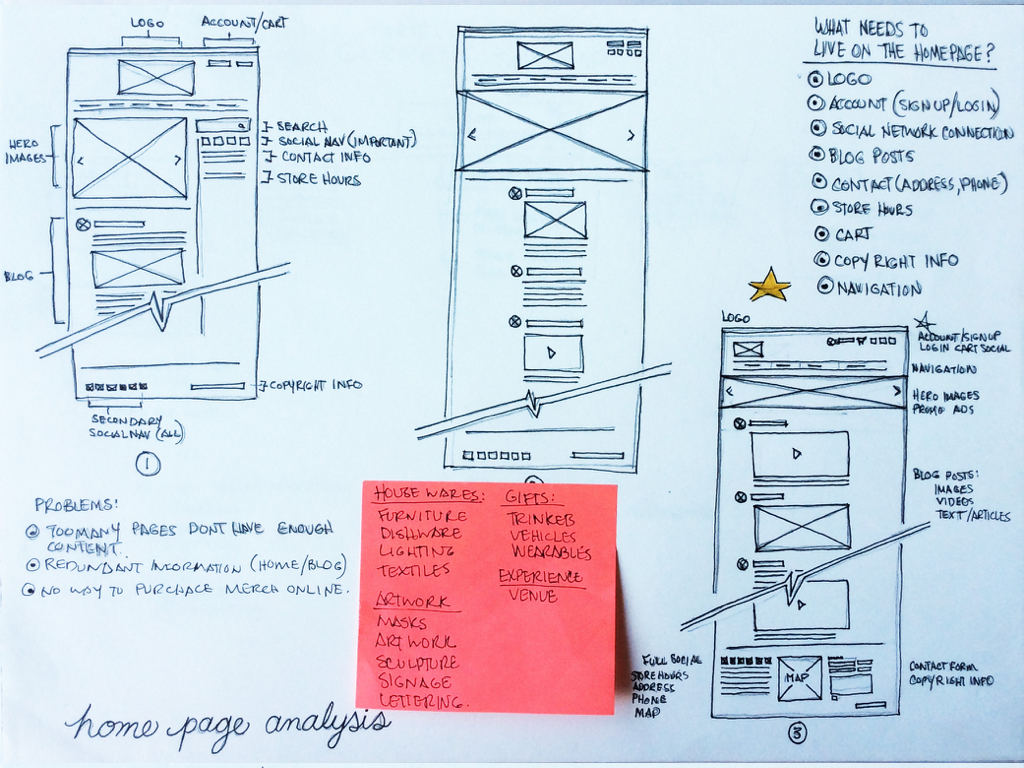 LOGO
ACCOUNT/CART
HERO
IMAGES
SEARCH
SOCIAL NAV (IMPORTANT)
CONTACT INFO
STORE HOURS
BLOG
COPYRIGHT INFO
SECONDARY
SOCIAL NAV (ALL)
1
WHAT NEEDS TO
LIVE ON THE HOMEPAGE?
LOGO
ACCOUNT (SIGNUP/LOGIN)
SOCIAL NETWORK CONNECTION
BLOG POSTS
CONTACT (ADDRESS, PHONE)
STORE HOURS
CART
COPYRIGHT INFO
NAVIGATION
LOGO
ACCOUNT/SIGNUP
LOGIN CART SOCIAL
NAVIGATION
HERO IMAGES
PROMO ADS
BLOG POSTS:
IMAGES
VIDEOS
TEXT/ARTICLES
FULL SOCIAL
STORE HOURS
ADDRESS
PHONE
MAP
MAP
CONTACT FORM
COPYRIGHT INFO
3
PROBLEMS:
TOO MANY PAGES DONT HAVE ENOUGH
CONTENT.
REDUNDANT INFORMATION (HOME/BLOG)
NO WAY TO PURCHACE MERCH ONLINE.
HOUSE WARES:
FURNITURE
DISHWARE
LIGHTING
TEXTILES
ARTWORK
MASKS
ART WORK
SCULPTURE
SIGNAGE
LETTERING.
GIFTS:
TRINKETS
VEHICLES
WEARABLES
EXPERIENCE
VENUE
home page analysis